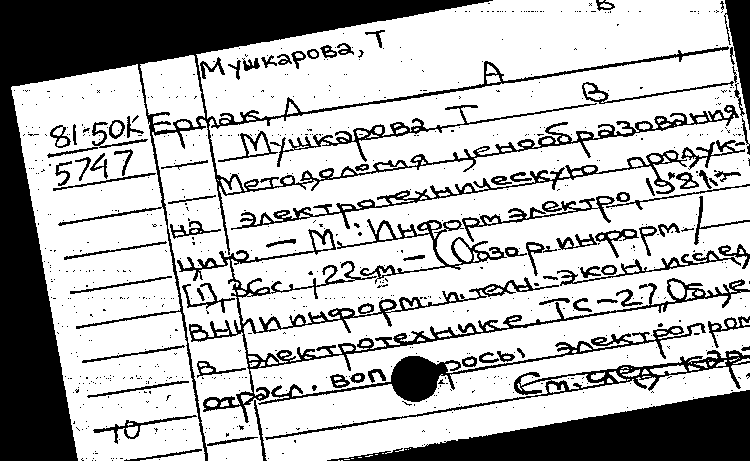 В
Мушкарова, Т
А
81-50К Ермак, Л
В
5747 Мушкарова, Т
Методология ценообразования
на электротехническую продук-
цию. — М.: Информэлектро, 1981.—
[1], 36с. ; 22см. — (Обзор. информ /
ВНИИ информ. и техн.-экон. исслед
в электротехнике. ТС-27, Общ
отрасл. воп росы электропром
См. след. карт
10